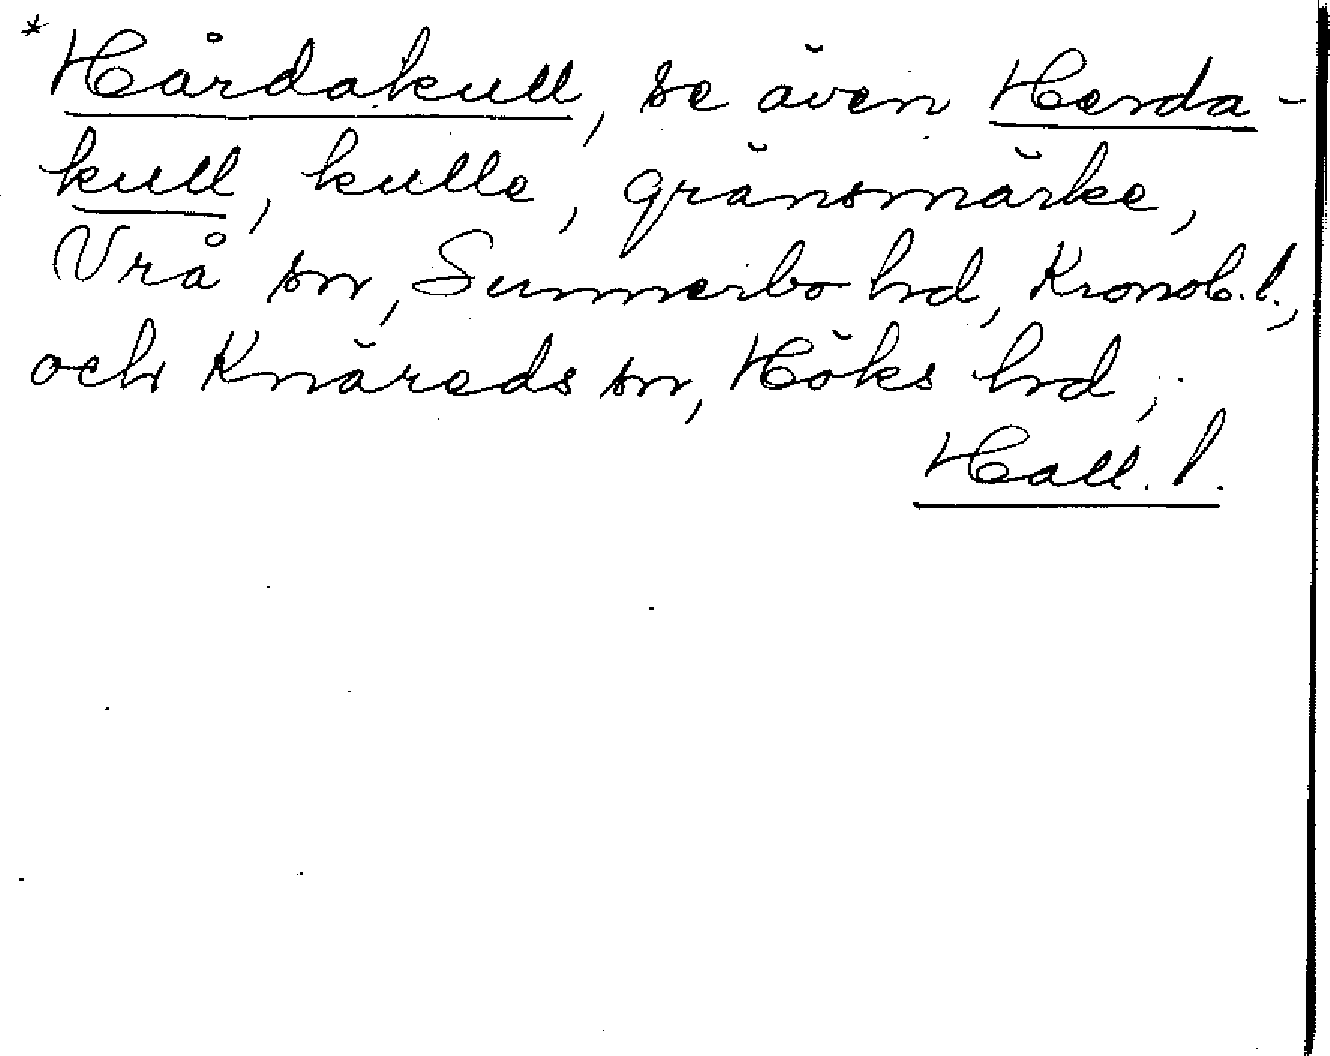 *Hårdakull, se även Herda-
kull, kulle, gränsmärke,
Vrå sn, Sunnerbo hd, Kronob. l.,
och Knäreds sn, Höks hd,
Hall. l.